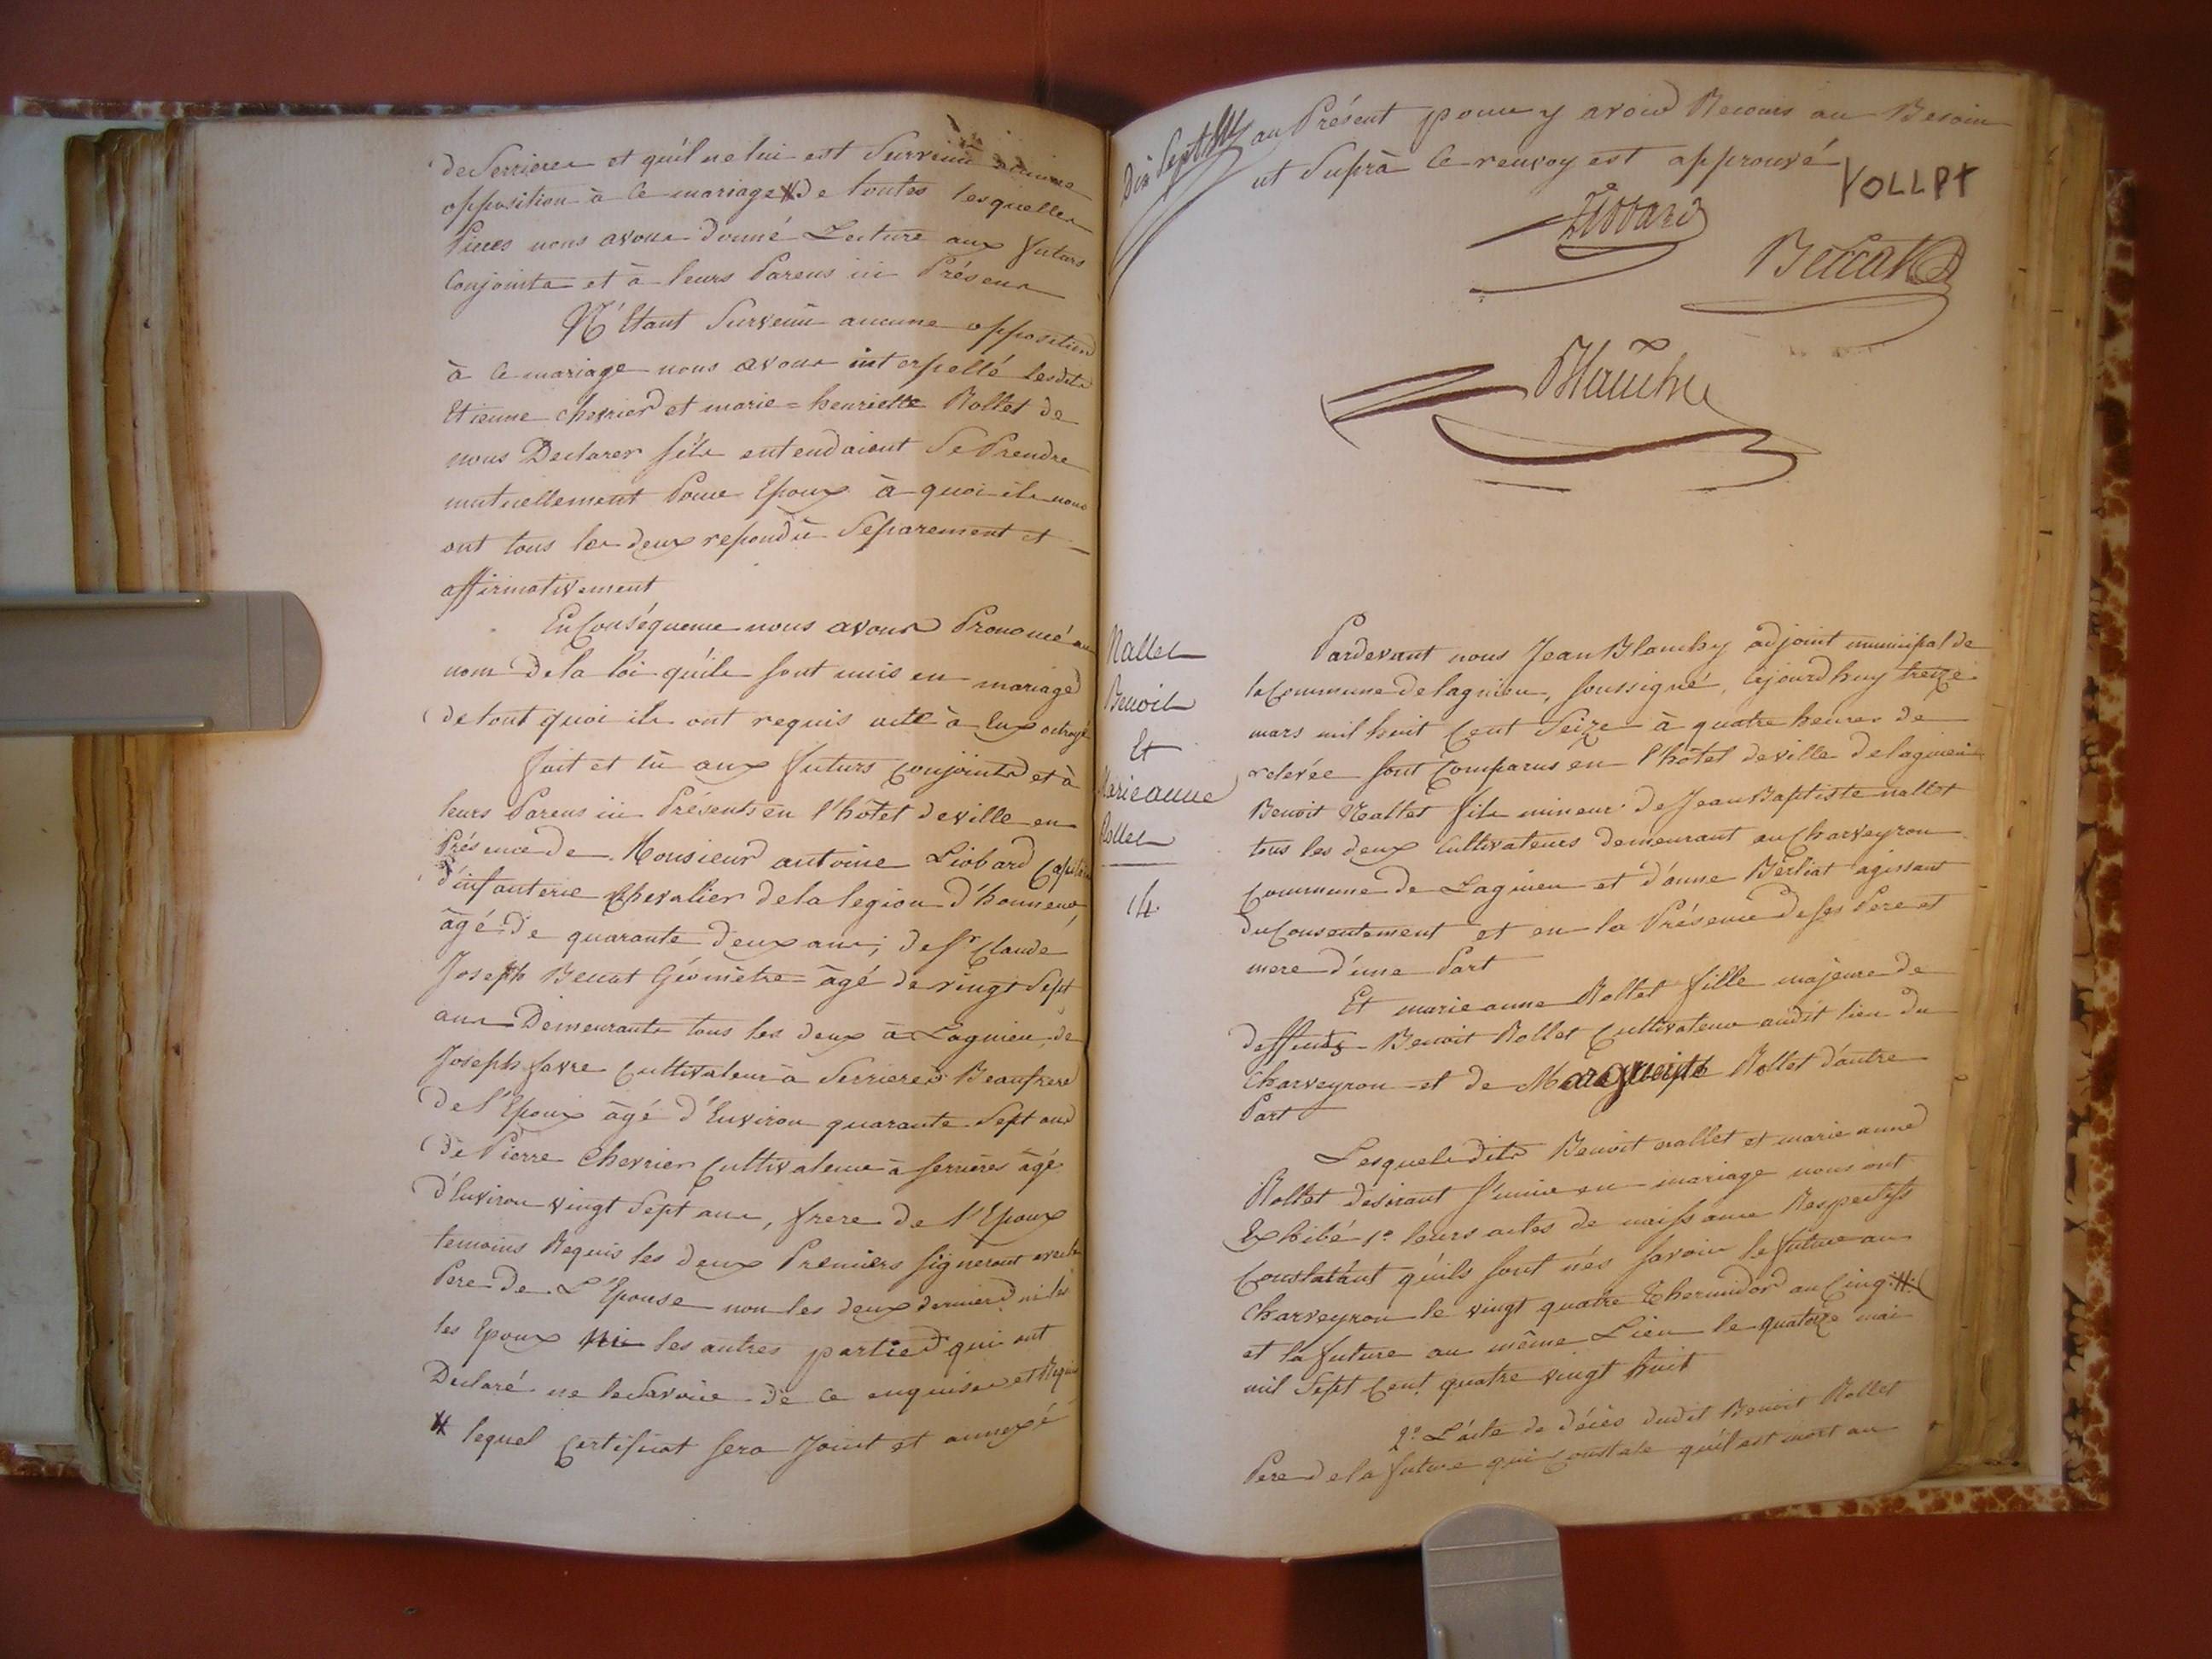 de Serriere et qu'il ne lui est Survenu aucune
opposition à ce mariage # de toutes lesquelles
Pieces nous avons donné Lecture aux futurs
Conjoints et à leurs Parens ici Présens
N'Etant Survenu aucune opposition
à ce mariage nous avons interpellé lesdits
Etienne chevrier et marie = henriette Rollet de
nous Declarer s'ils entendoient Se Prendre
mutuellement Pour Epoux à quoi ils nous
ont tous les deux repondu Separement et
affirmativement
En Conséquence nous avons Prononcé au
nom de la loi qu'ils sont unis en mariage
de tout quoi ils ont requis acte à Eux octroyé
fait et lu aux futurs conjoints et à
leurs Parens ici Présents en l'hôtel deville en
Présence de Monsieur antoine Liobard Capitaine
d'infanterie Chevalier de la legion d'honneur,
âgé de quarante deux ans; de Sr Claude
Joseph Beccat Géomètre = âgé de vingt Sept
ans Demeurants tous les deux à Lagnieu, de
Joseph favre Cultivateur à Serrieres Beaufrere
de l'Epoux âgé d'Environ quarante Sept ans
de Pierre Chevrier Cultivateur à serrières âgé
d'Environ vingt Sept ans, frere de l'Epoux
temoins Requis les deux Premiers signeront avec le
Pere de L'Epouse non les deux derniers ni les
les Epoux ni les autres parties qui ont
Declaré ne le Savoir de ce enquises et Requis
# lequel Certificat sera Joint et annexé
Dix Sept
au Présent pour y avoir Recours au Besoin
ut Suprà le renvoy est approuvé
VOLLPT
Liobard
Beccat
Blanchy
Nallet
Benoit
Et
Marie anne
Rollet
14.
Pardevant nous Jean Blanchy adjoint municipal de
la Commune de lagnieu, soussigné, cejourd'huy treize
mars mil huit Cent Seize à quatre heures de
relevée sont Comparus en l'hôtel deville de lagnieu
Benoit Nallet fils mineur de Jean Baptiste nallet
tous les deux Cultivateurs demeurant en Charveyron
Commune de Lagnieu et d'anne Berliat agissant
du Consentement et en la Présence de ses Pere et
mere d'une Part
Et marie anne Rollet fille majeure de
deffunts Benoit Rollet Cultivateur audit lieu du
Charveyron et de Marguerite Rollet d'autre
Part
Lesquels dits Benoit nallet et marie anne
Rollet desirant s'unir en mariage nous ont
Exhibé 1º leurs actes de naissance Respectifs
Constatant qu'ils sont nés savoir le futur au
Charveyron le vingt quatre thermidor an Cinq #
et la future au même Lieu le quatorze mai
mil Sept Cent quatre vingt huit
2º L'acte de décès dudit Benoit Rollet
Pere de la future qui Constate qu'il est mort au